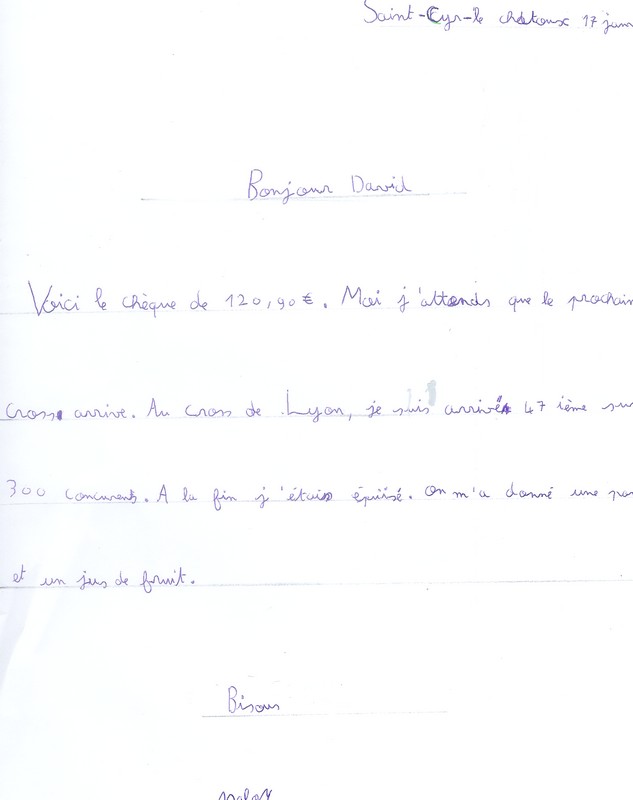 Saint-Cyr-le chatoux 17
Bonjour David
Voici le chèque de 120,90 €. Moi j'attends que le prochain
Cross arrive. Au cross de Lyon, je suis arrivé 47 ième sur
300 concurents. A la fin j'étais épuisé. On m'a donné une
et un jus de fruit.
Bisous